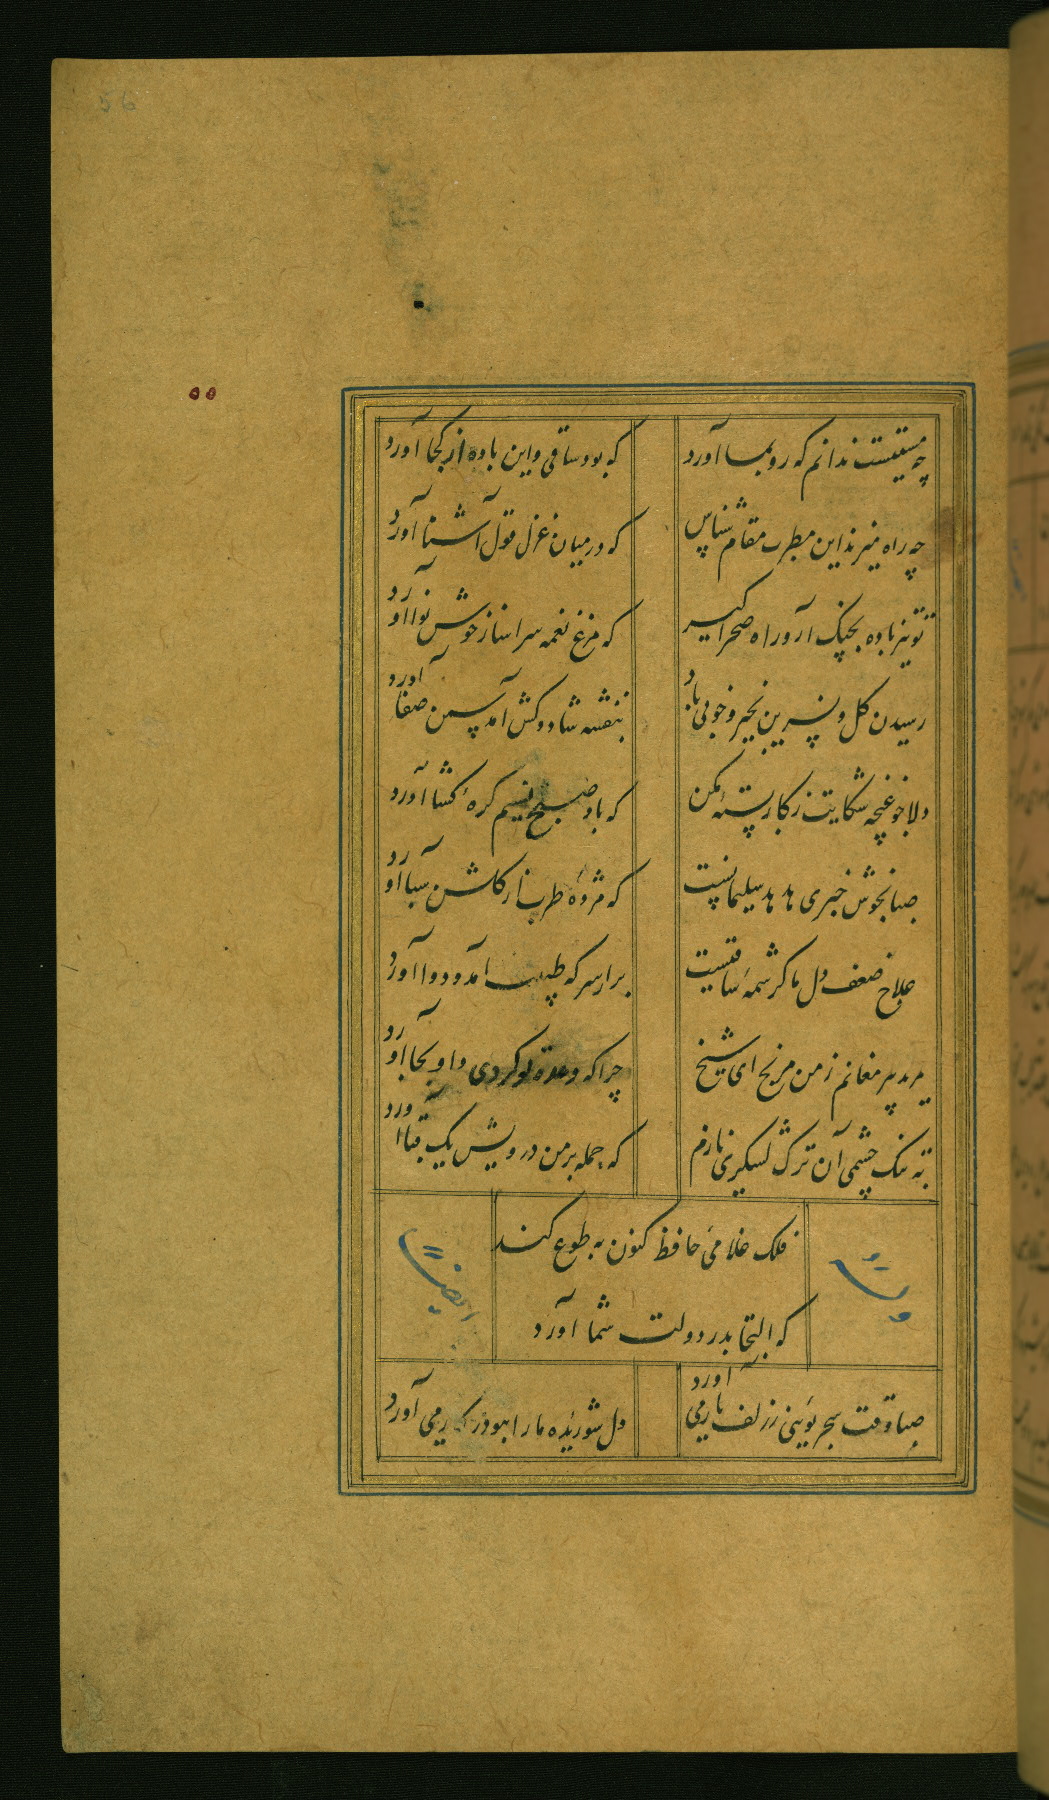 56
۵۵
چه مستیست ندانم که رو بما آورد
که بود ساقی و این باده از کجا آورد
چه راه میزند این مطرب مقام شناس
که در میان غزل قول آشنا آورد
تو نیز باده بچنگ آر و راه صحرا گیر
که مرغ نغمه سرا ساز خوش نوا آورد
رسیدن گل و نسرین بخیر و خوبی باد
بنفشه شاد و کش آمد سمن صفا آورد
دلا چو غنچه شکایت ز کار بسته مکن
که باد صبح نسیم گره گشا آورد
صبا بخوش خبری هدهد سلیمانست
که مژده طرب از گلشن سبا آورد
علاج ضعف دل ما کرشمه ساقیست
برار سر که طبیب آمد و دوا آورد
مرید پیر مغانم ز من مرنج ای شیخ
چرا که وعده تو کردی و او بجا آورد
به تنگ چشمی آن ترک لشکری نازم
که حمله بر من درویش یک قبا آورد
فلک غلامی حافظ کنون به طوع کند
که التجا بدر دولت شما آورد
وله
ایضا
صبا وقت سحر بویی ز زلف یار می آورد
دل شوریده ما را ببو در کار می آورد